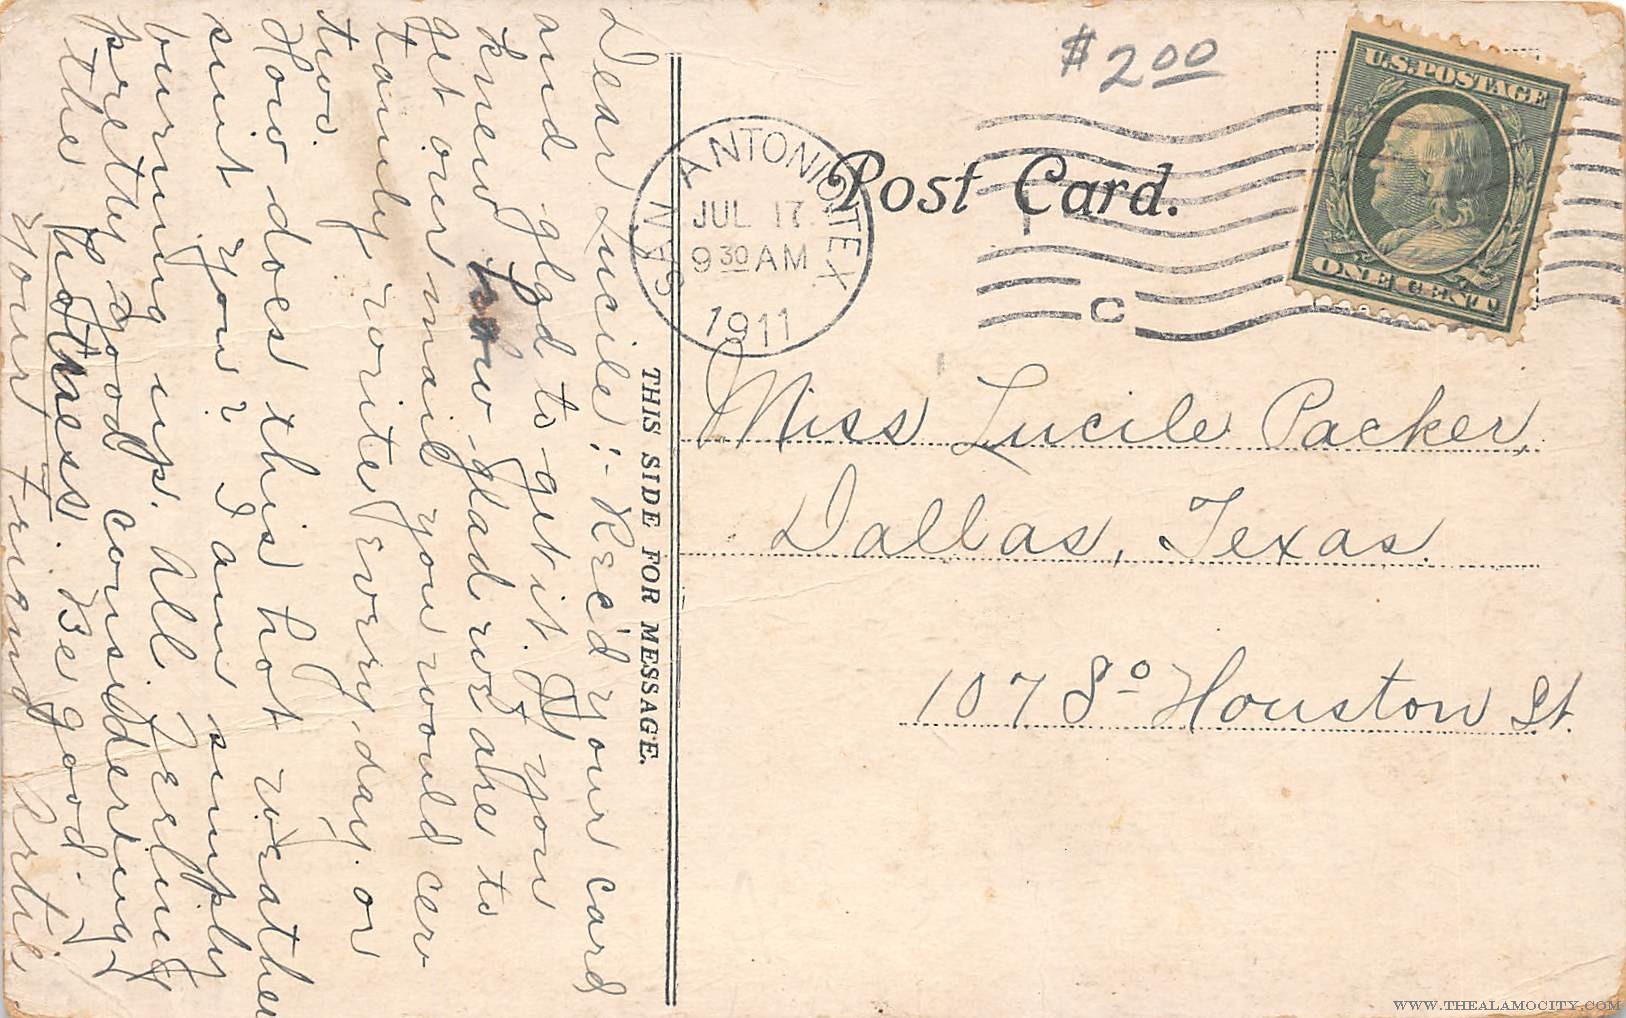 Dear Lucile:- Rec'd your card
and glad to get it. If you
knew how glad we are to
get our mail you would cer
tainly write every day or
two.
How does this hot weather
suit you? I am simply
burning up. All feeling
pretty good considdering
the hotness. Be good.
Your Friend Artie
THIS SIDE FOR MESSAGE.
$2.00
Post Card.
SAN ANTONIO, TEX
JUL 17
9 30 AM
1911
C
U.S. POSTAGE
ONE CENT
Miss Lucile Packer,
Dallas, Texas.
107 So Houston St.
WWW.THEALAMOCITY.COM